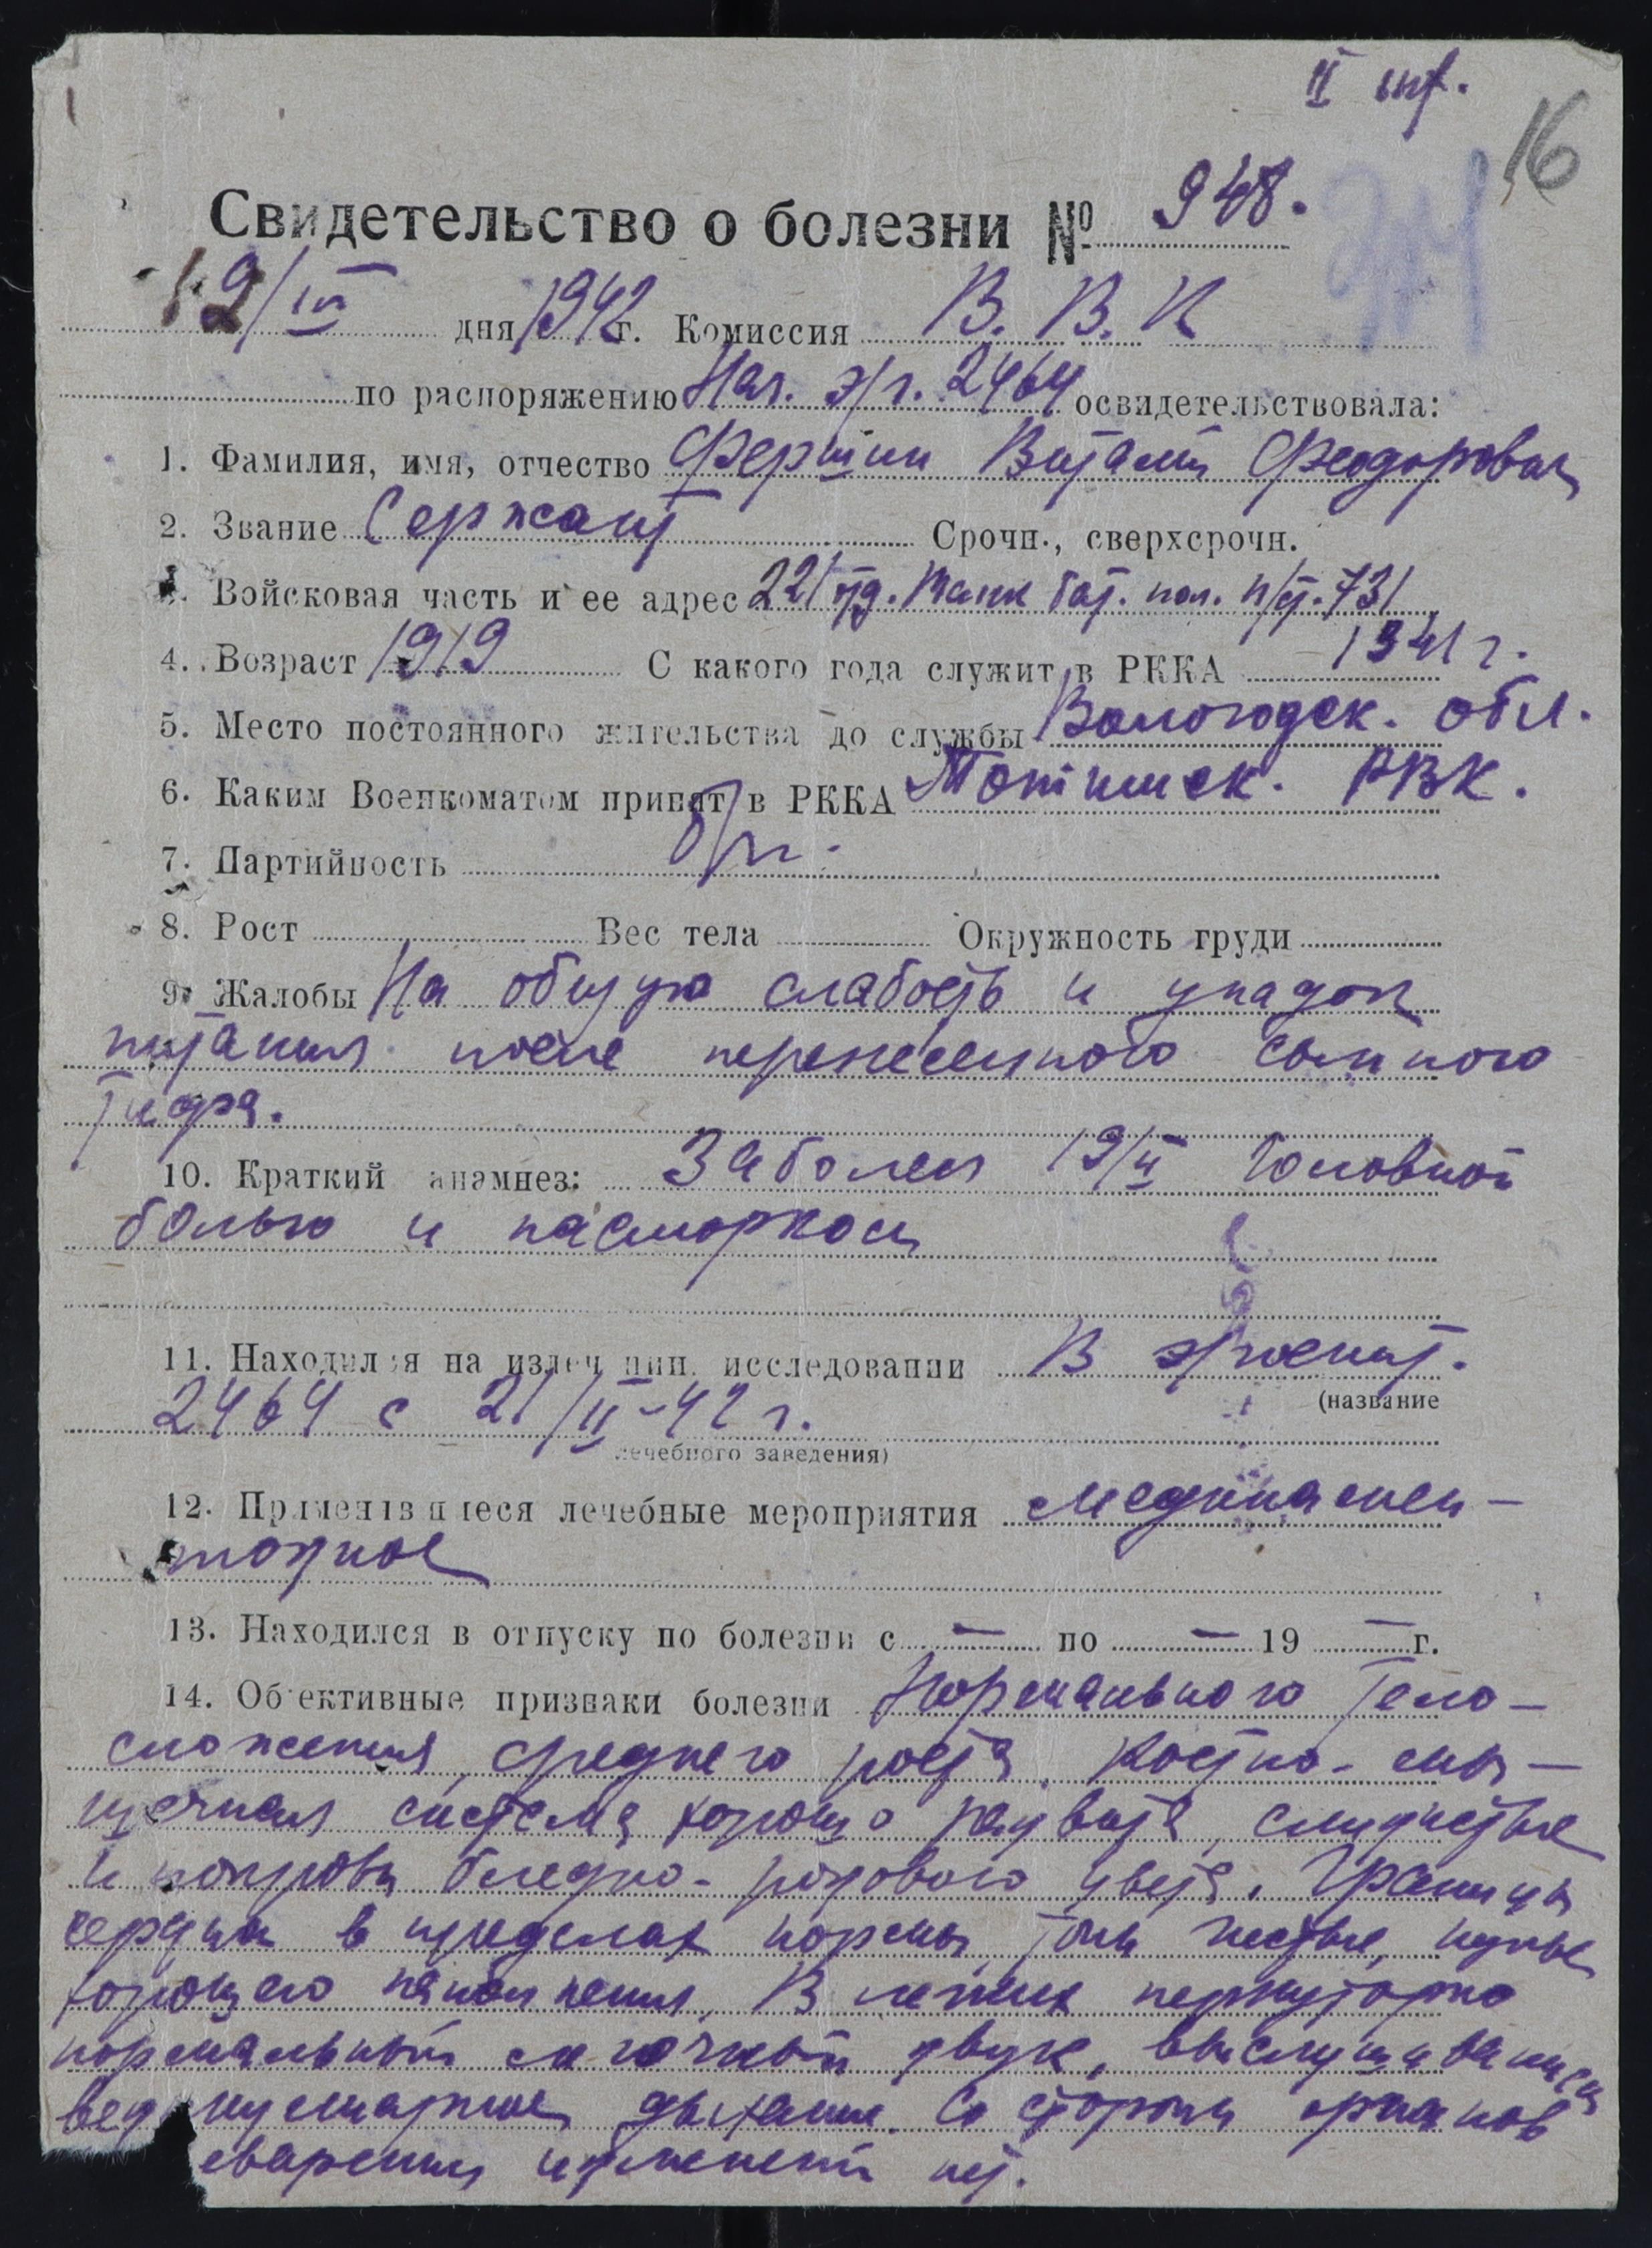 II инф.
16
Свидетельство о болезни № 948.
19/III дня 1942 г. Комиссия В. В. К
по распоряжению Нач. э/г. 2464 освидетельствовала:
1. Фамилия, имя, отчество Виталий Феодорович
2. Звание Сержант Срочн., сверхсрочн.
Войсковая часть и ее адрес 221 танк бат. п/я. 731
4. Возраст 1919 С какого года служит в РККА 1941 г.
5. Место постоянного жительства до службы Вологодск. обл.
6. Каким Военкоматом принят в РККА РВК.
7. Партийность б/п.
8. Рост Вес тела Окружность груди
9. Жалобы На общую слабость и упадок
питания после перенесенного сыпного
тифа.
10. Краткий анамнез: Заболел 19/II головной
болью и насморком
11. Находился на излечении, исследовании В э/госпит.
(название
2464 с 21/II-42 г.
лечебного заведения)
12. Применявшиеся лечебные мероприятия Медикамен-
тозное
13. Находился в отпуску по болезни с — по — 19 — г.
14. Об'ективные признаки болезни Нормального тело-
сложения, среднего роста. Костно-мы-
шечная система хорошо развита, слизистые
и покровы бледно-розового цвета. Границы
сердца в пределах нормы, тоны чистые, пульс
хорошего наполнения. В легких перкуторно
нормальный легочный звук, выслушивание
везикулярное дыхание. Со стороны органов
еварения изменений нет.